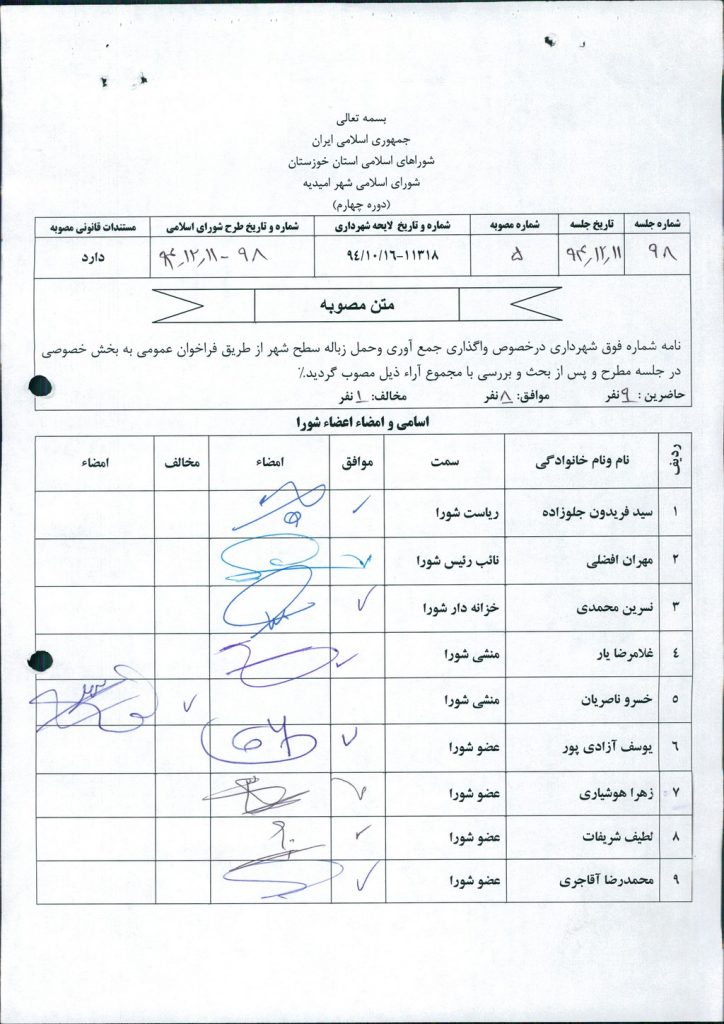 بسمه تعالی
جمهوری اسلامی ایران
شوراهای اسلامی استان خوزستان
شورای اسلامی شهر امیدیه
(دوره چهارم)
شماره جلسه تاریخ جلسه شماره مصوبه شماره و تاریخ لایحه شهرداری شماره و تاریخ طرح شورای اسلامی مستندات قانونی مصوبه
۹۸ ۹۴٫۱۲٫۱۱ ۵ ۱۱۳۱۸-۹٤/۱۰/۱٦ ۹۸ - ۹۴٫۱۲٫۱۱ دارد
متن مصوبه
نامه شماره فوق شهرداری درخصوص واگذاری جمع آوری وحمل زباله سطح شهر از طریق فراخوان عمومی به بخش خصوصی
در جلسه مطرح و پس از بحث و بررسی با مجموع آراء ذیل مصوب گردید.٪
حاضرین : ۹ نفر موافق: ۸ نفر مخالف: ۱ نفر
اسامی و امضاء اعضاء شورا
ردیف نام ونام خانوادگی سمت موافق امضاء مخالف امضاء
۱ سید فریدون جلوزاده ریاست شورا
۲ مهران افضلی نائب رئیس شورا
۳ نسرین محمدی خزانه دار شورا
٤ غلامرضا یار منشی شورا
۵ خسرو ناصریان منشی شورا
٦ یوسف آزادی پور عضو شورا
۷ زهرا هوشیاری عضو شورا
۸ لطیف شریفات عضو شورا
۹ محمدرضا آقاجری عضو شورا